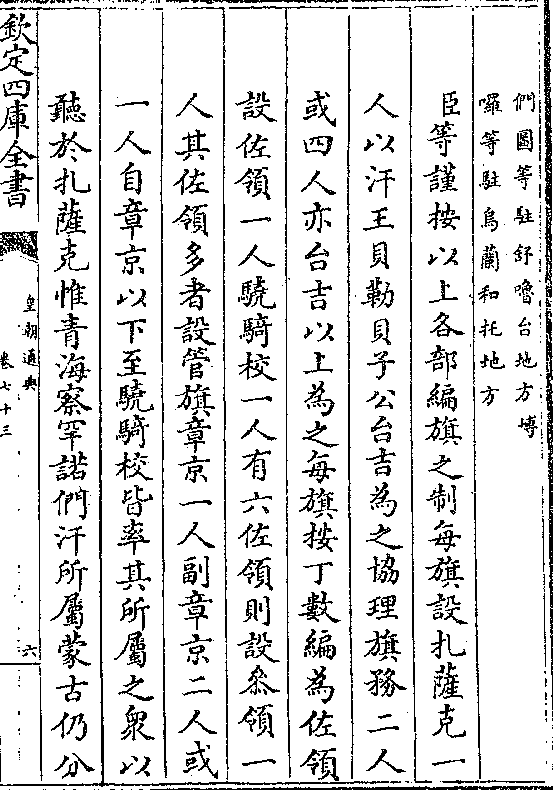 們圖等駐舒嚕台地方博
囉等駐烏蘭和托地方
臣等謹按以上各部編旗之制每旗設扎薩克一
人以汗王貝勒貝子公台吉為之協理旗務二人
或四人亦台吉以上為之每旗按丁數編為佐領
設佐領一人驍騎校一人有六佐領則設叅領一
人其佐領多者設管旗章京一人副章京二人或
一人自章京以下至驍騎校皆率其所屬之衆以
聽於扎薩克惟青海察罕諾們汗所屬蒙古仍分
欽定四庫全書
皇朝通典
卷七十三
六